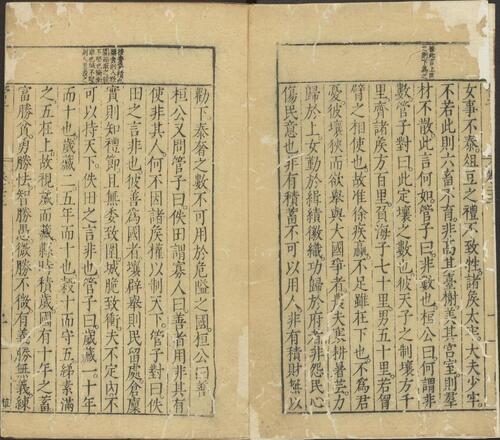 女事不泰俎豆之禮不致牲諸矦太牢大夫少牢
不若此則六畜不育非高其臺榭美其宮室則群
材不散此言何如管子曰非數也桓公曰何謂非
數管子對曰此定壤之數也彼天子之制壤方千
里齊諸矦方百里負海子七十里男五十里若胷
臂之相使也故准徐疾贏不足雖在下也不為君
憂彼壤狹而欲舉與大國爭者農夫寒耕暑芸力
歸於上女勤於緝績徽織功歸於府者非怨民心
傷民意也非有積蓄不可以用人非有積財無以
勸下泰奢之數不可用於危隘之國桓公曰善
桓公又問管子曰佚田謂寡人曰善者用非其有
使非其人何不因諸矦權以制天下管子對曰佚
田之言非也彼善為國者壤辟舉則民留處倉廩
實則知禮節且無委致圍城脆致衝夫不定內不
可以持天下佚田之言非也管子曰歲藏一十年
而十也歲藏二五年而十也穀十而守五綈素滿
之五在上故視歲而藏縣時積歲國有十年之蓄
富勝貧勇勝怯智勝愚微勝不微有義勝無義練